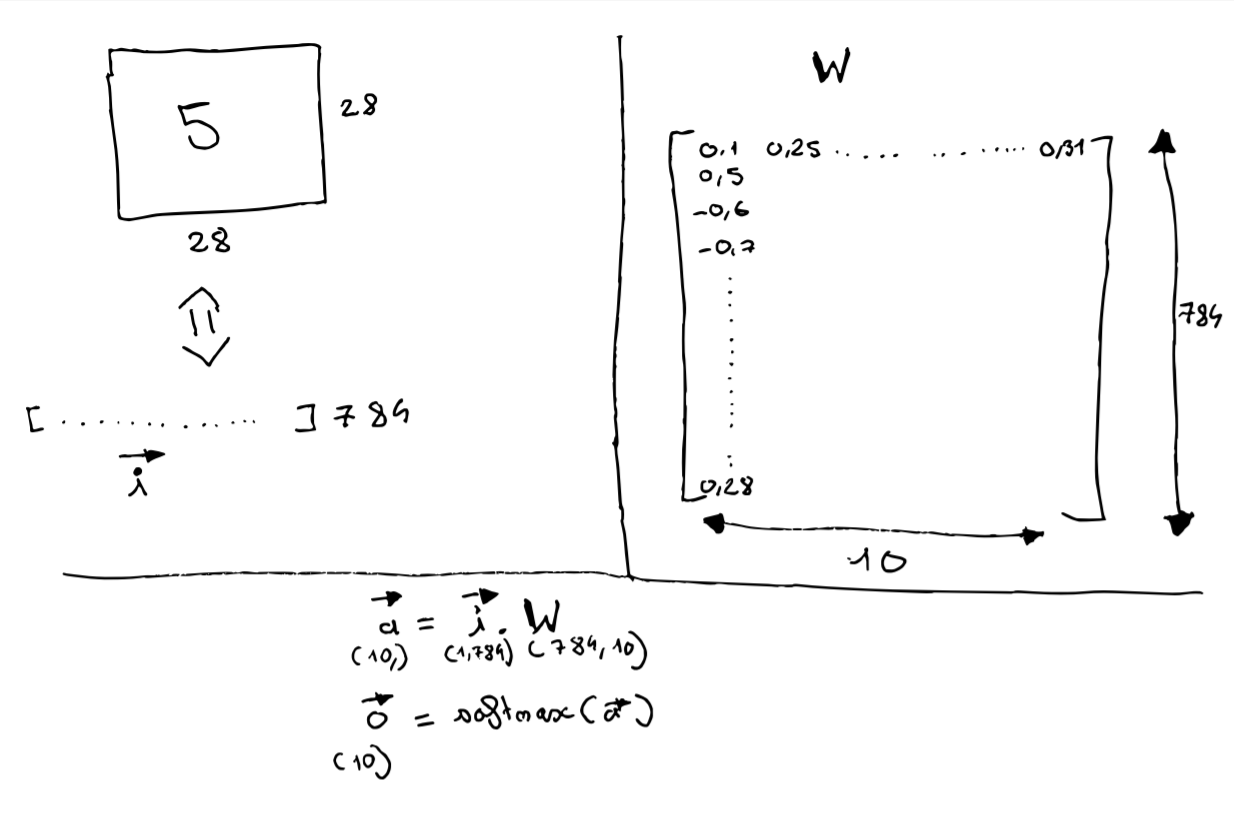 5
28
28
[ ............. ] 784
i
W
0.1 0,25 ..... ......... 0,31
0,5
-0,6
-0,7
0,28
784
10
a = i . W
(10,) (1,784) (784,10)
o = softmax(a)
(10)